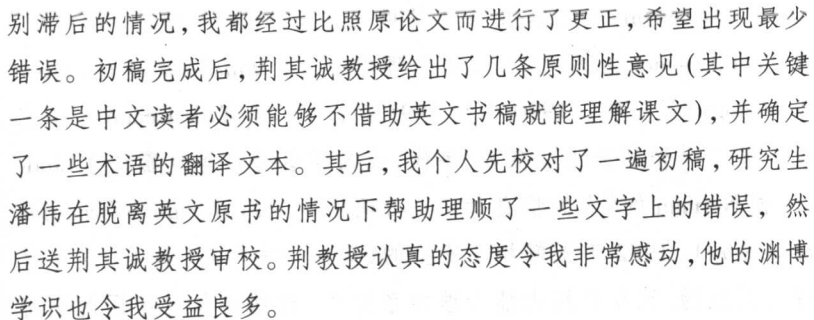 别滞后的情况,我都经过比照原论文而进行了更正,希望出现最少
错误。初稿完成后,荆其诚教授给出了几条原则性意见(其中关键
一条是中文读者必须能够不借助英文书稿就能理解课文),并确定
了一些术语的翻译文本。其后,我个人先校对了一遍初稿,研究生
潘伟在脱离英文原书的情况下帮助理顺了一些文字上的错误,然
后送荆其诚教授审校。荆教授认真的态度令我非常感动,他的渊博
学识也令我受益良多。